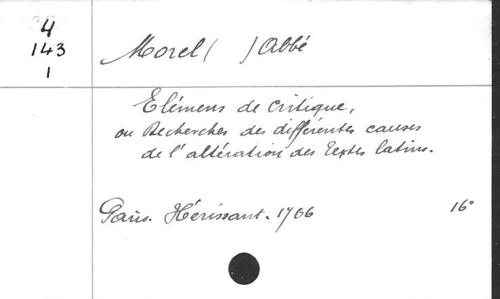 4
143
1
Morel ( ) Abbé
Elémens de critique,
ou Recherches des différentes causes
de l'altération des Textes latins.
Paris. Hérissant. 1766
16°